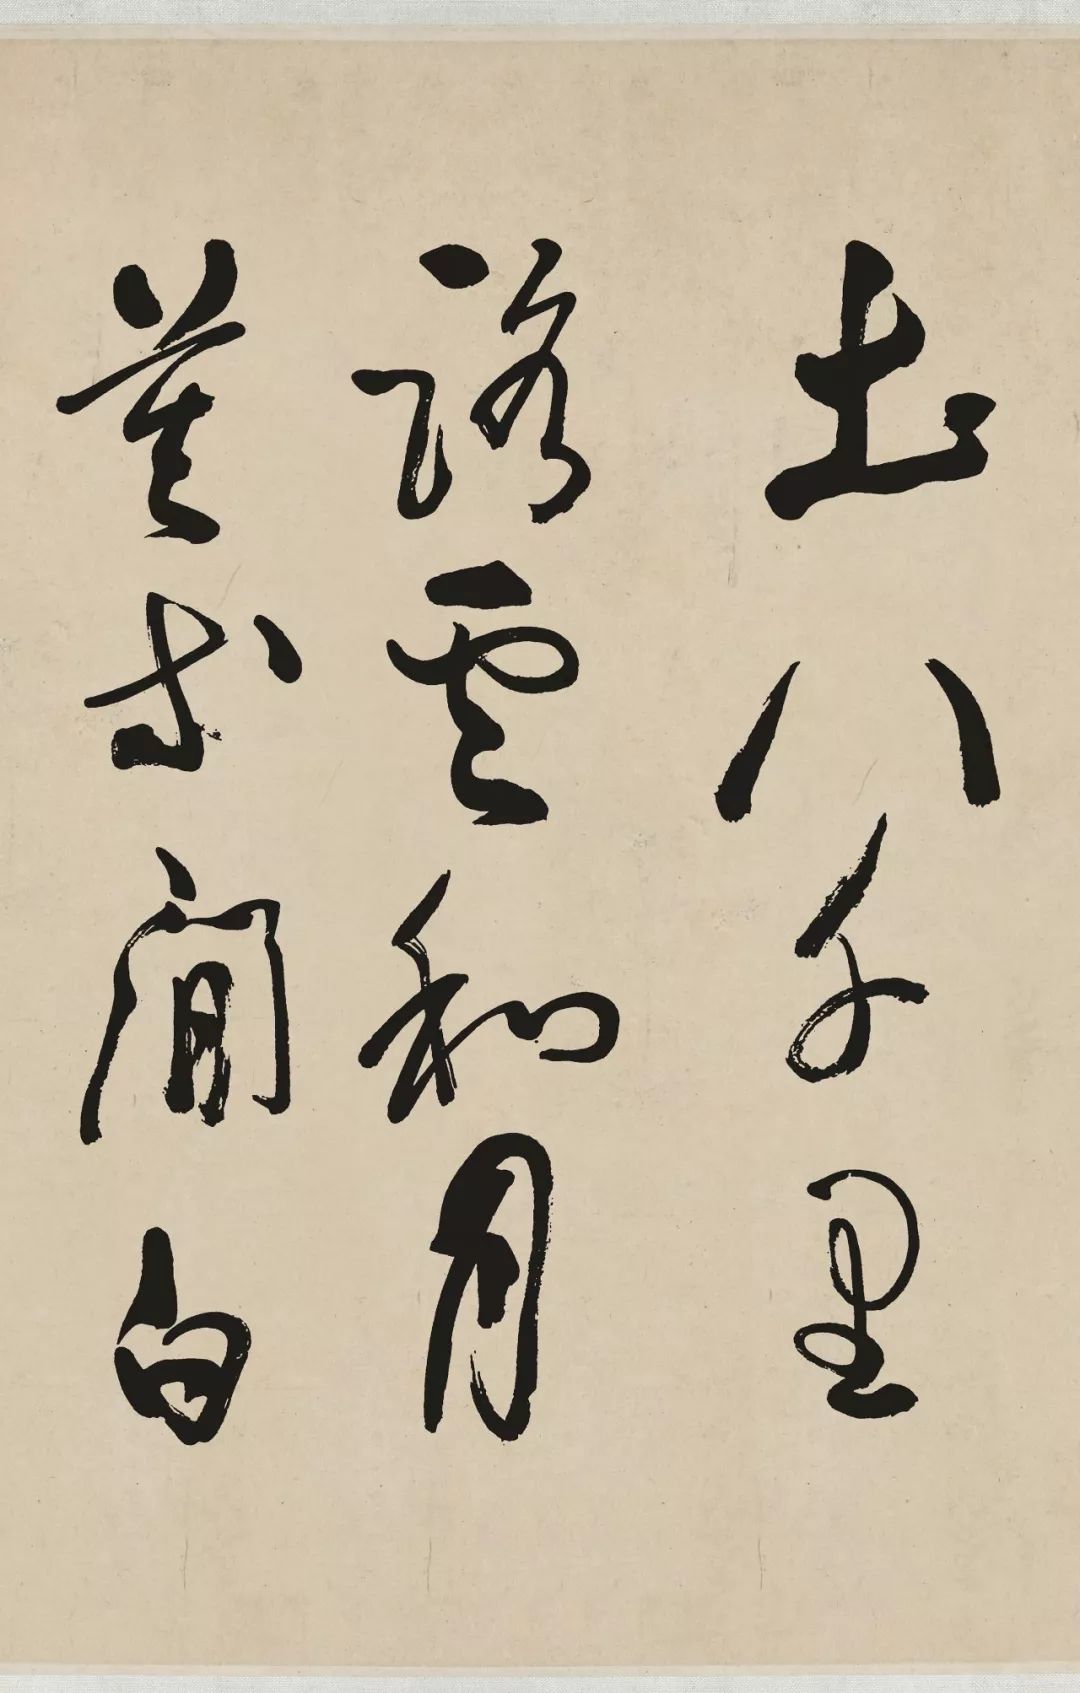 土八千里
路雲和月
莫等閒白